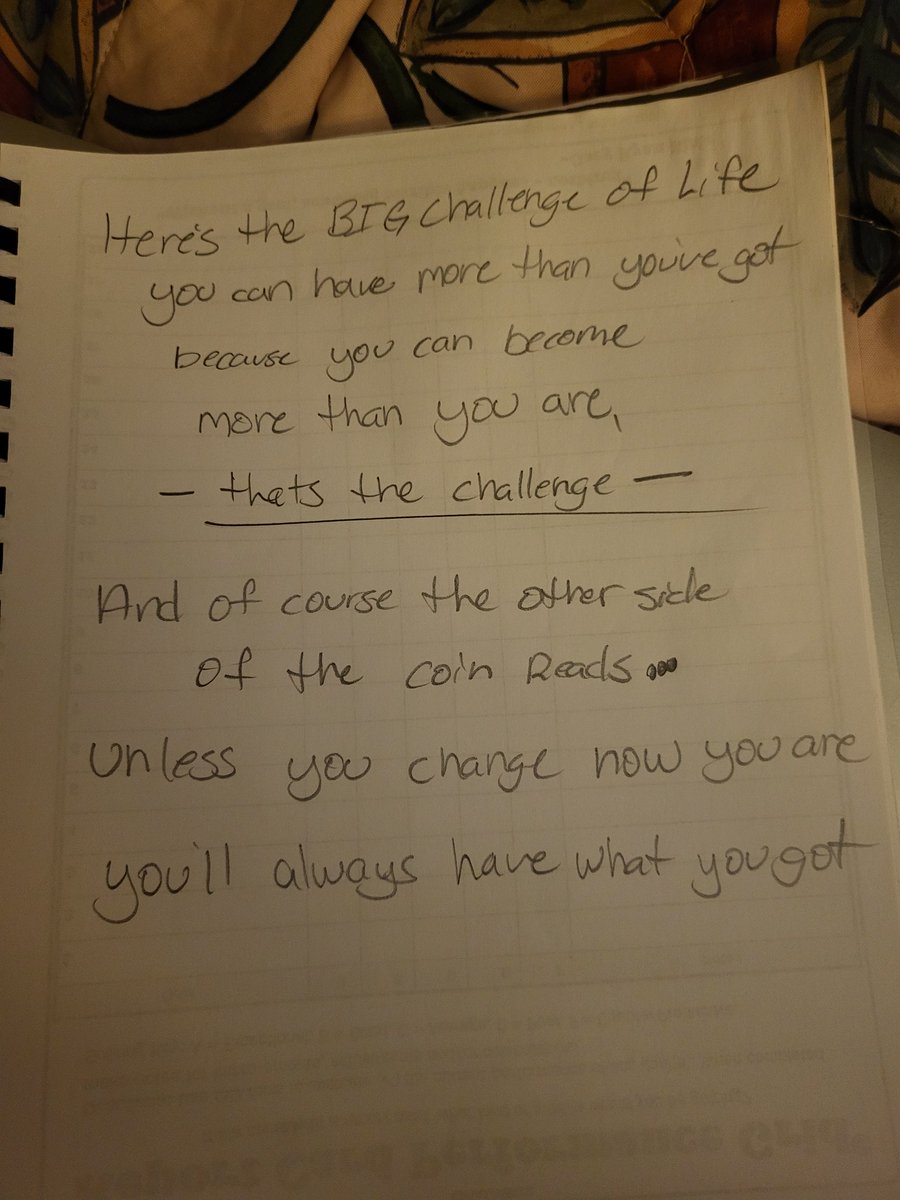 Here's the BIG challenge of Life
you can have more than you've got
because you can become
more than you are,
— thats the challenge —
And of course the other side
of the coin Reads...
Unless you change how you are
you'll always have what you got